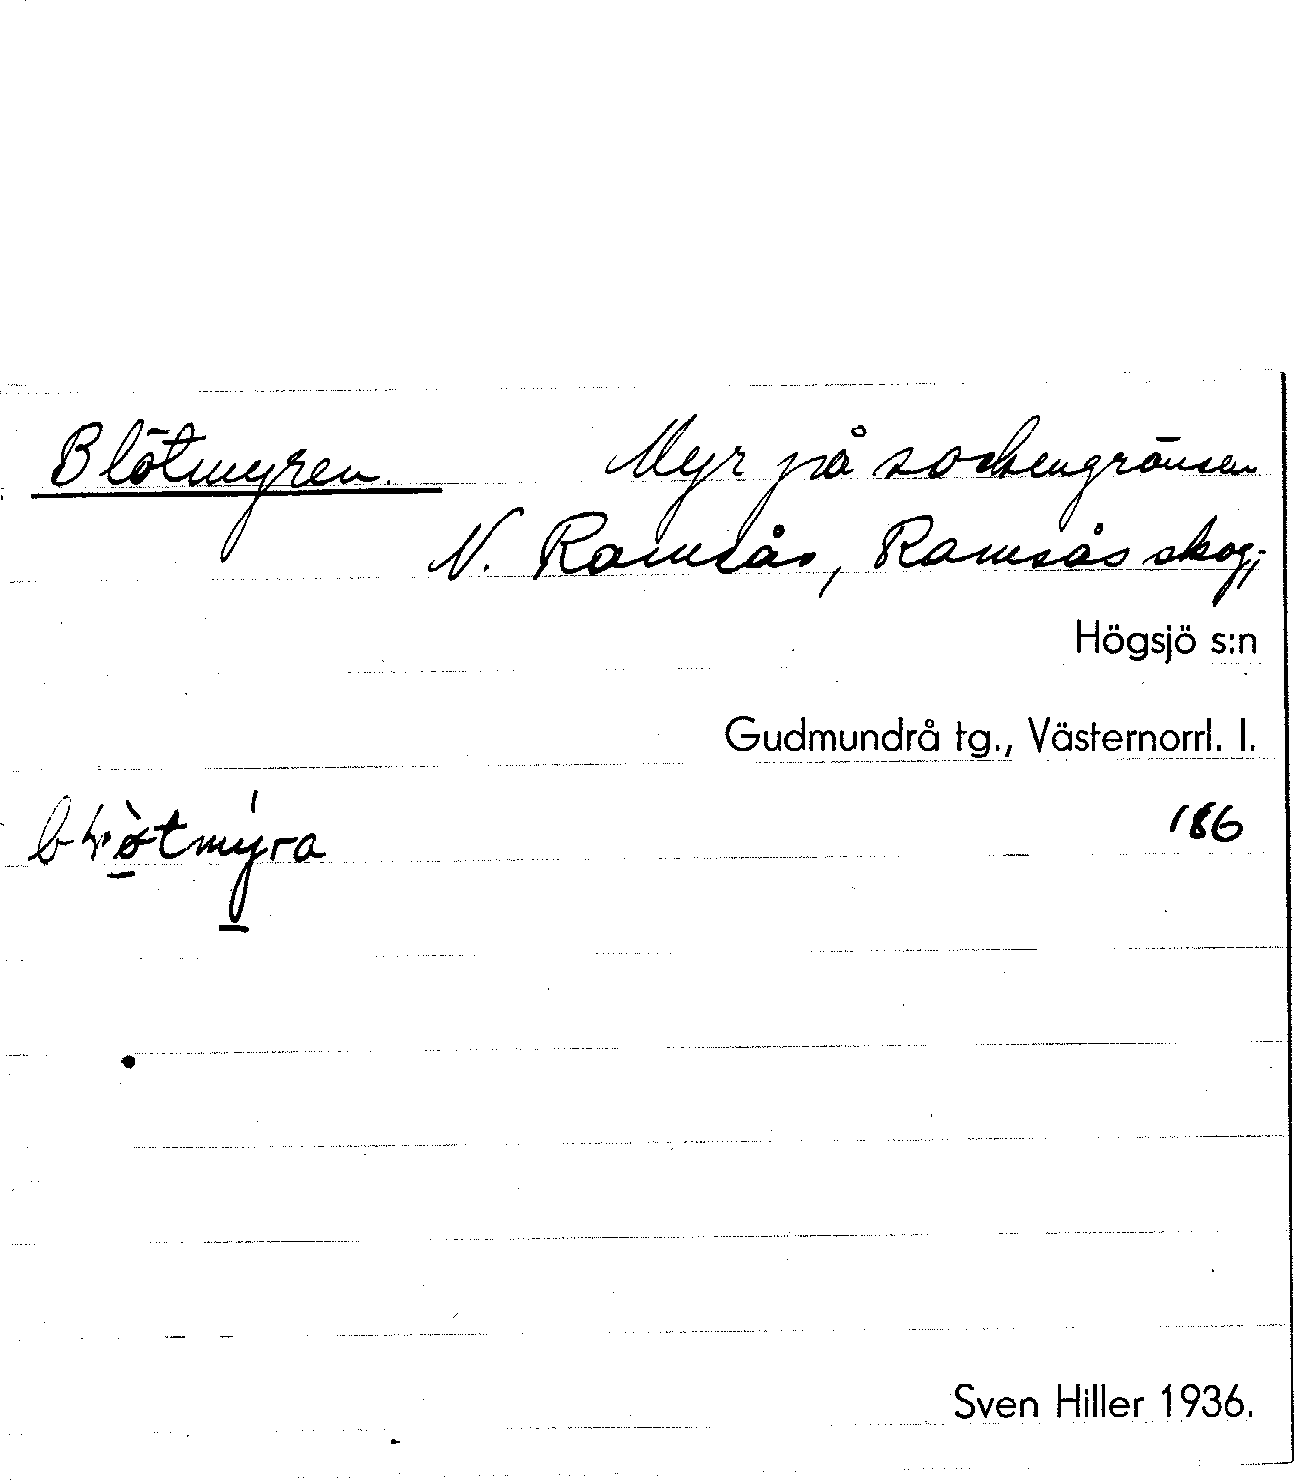 Blötmyren. Myr på sockengränsen
N. Ramsås, Ramsås skog;
Högsjö s:n
Gudmundrå tg., Västernorrl. l.
186
Sven Hiller 1936.